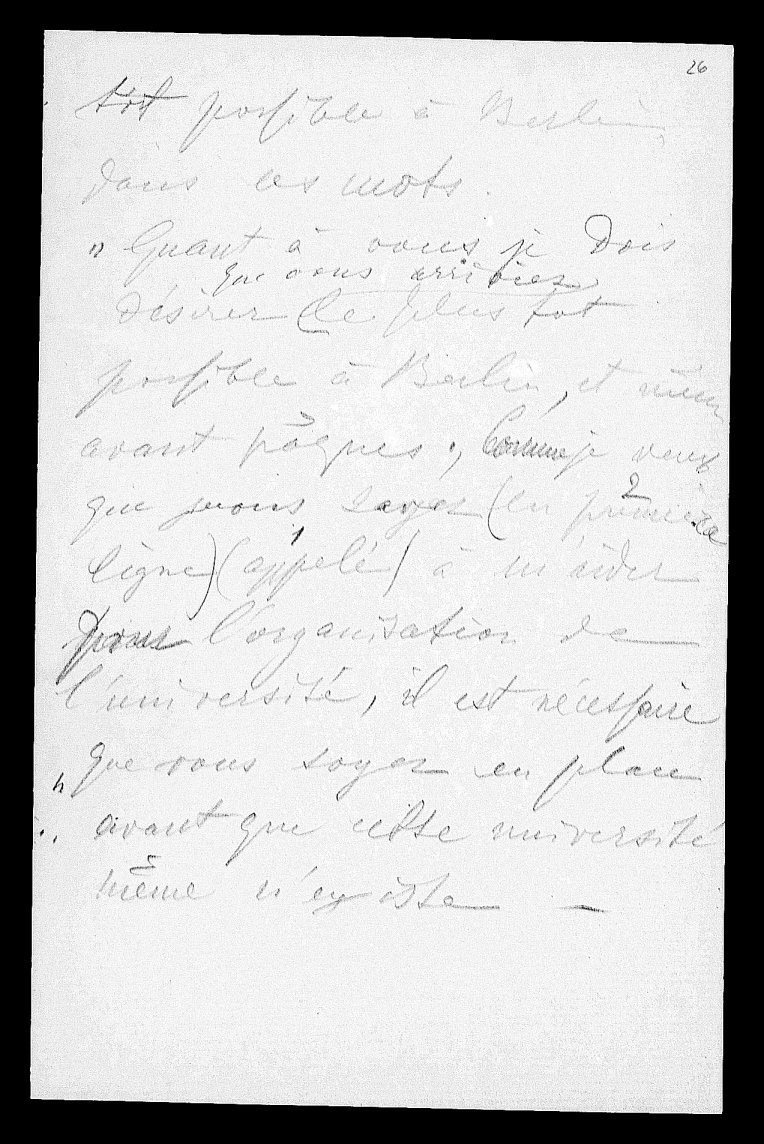 26
tôt possible à Berlin,
dans ces mots.
" Quant à vous je dois
que vous arriviez
désirer (le plus tôt
possible à Berlin, et même
avant pâques ; Comme je veux
que vous soyez (en première 2
ligne) (appelé) 1 à m'aider
pour l'organisation de
l'université, il est nécessaire
que vous soyez en place
" avant que cette université
même n'existe —